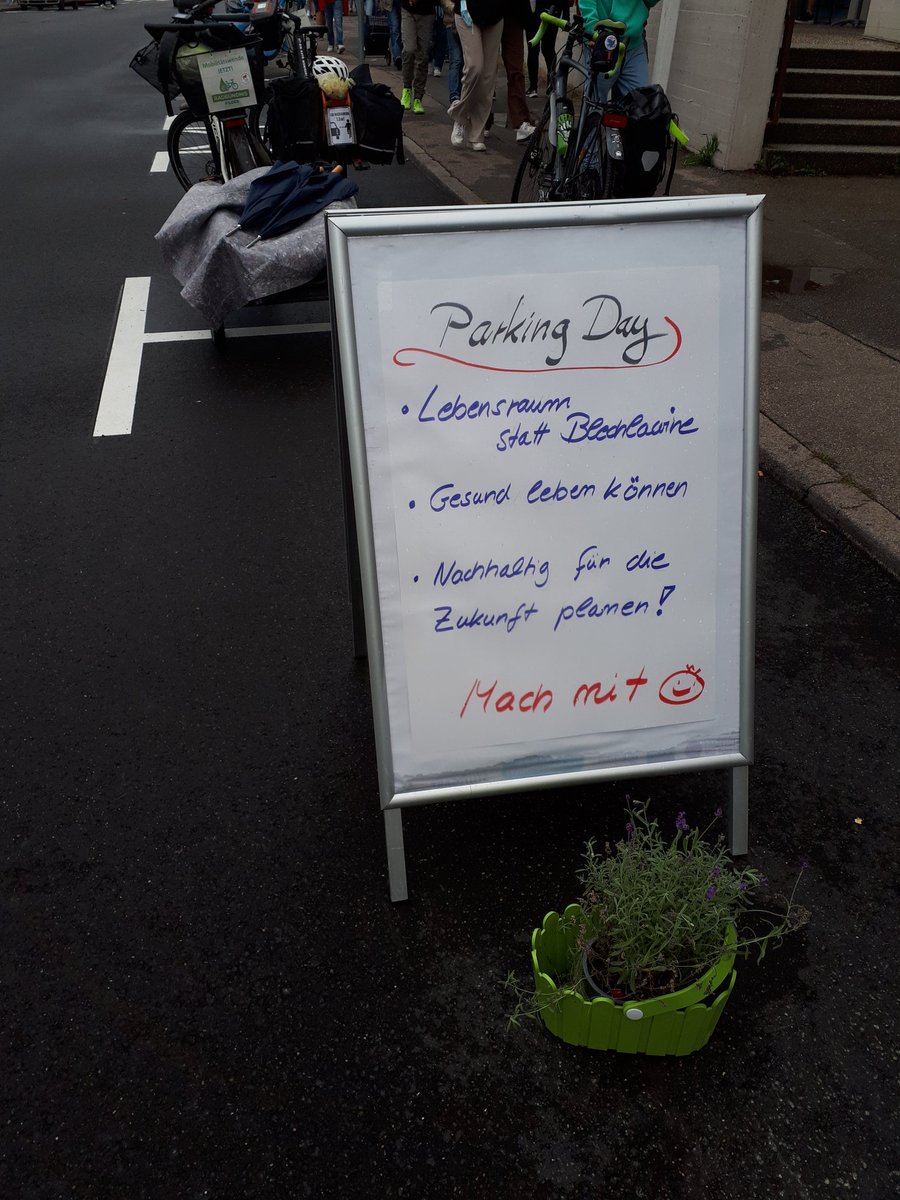 Mobilitätswende
JETZT!
Parking Day
• Lebensraum
statt Blechlawine
• Gesund leben können
• Nachhaltig für die
Zukunft planen!
Mach mit